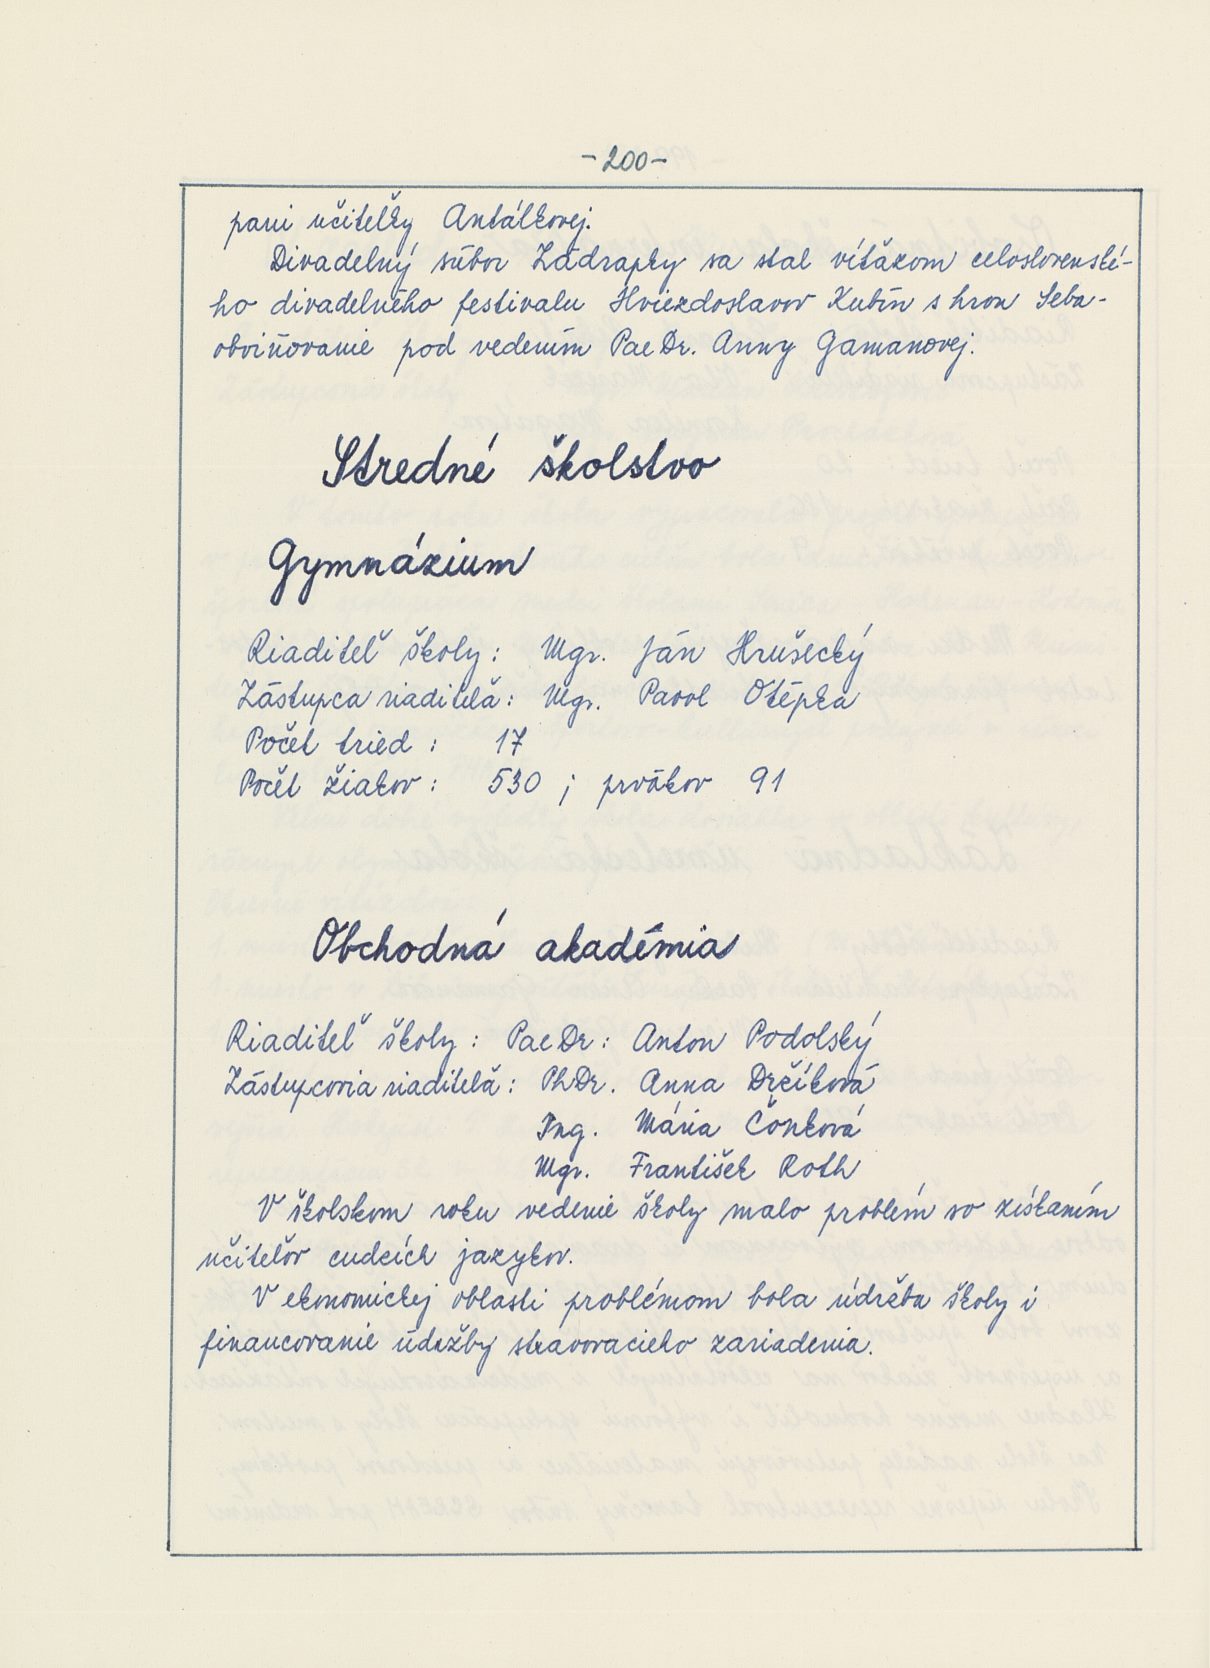 -200-
pani učiteľky Antálkovej.
Divadelný súbor Zádrapky sa stal víťazom celoslovenské-
ho divadelného festivalu Hviezdoslavov Kubín s hrou Seba-
obviňovanie pod vedením PaeDr. Anny Gamanovej.
Stredné školstvo
Gymnázium
Riaditeľ školy: Mgr. Ján Hrušecký
Zástupca riaditeľa: Mgr. Pavol Otépka
Počet tried : 17
Počet žiakov : 530 ; prvákov 91
Obchodná akadémia
Riaditeľ školy : PaeDr: Anton Podolský
Zástupcovia riaditeľa : PhDr. Anna Drčíková
Ing. Mária Čonková
Mgr. František Roth
V školskom roku vedenie školy malo problém so získaním
učiteľov cudzích jazykov.
V ekonomickej oblasti problémom bola údržba školy i
financovanie údržby stravovacieho zariadenia.